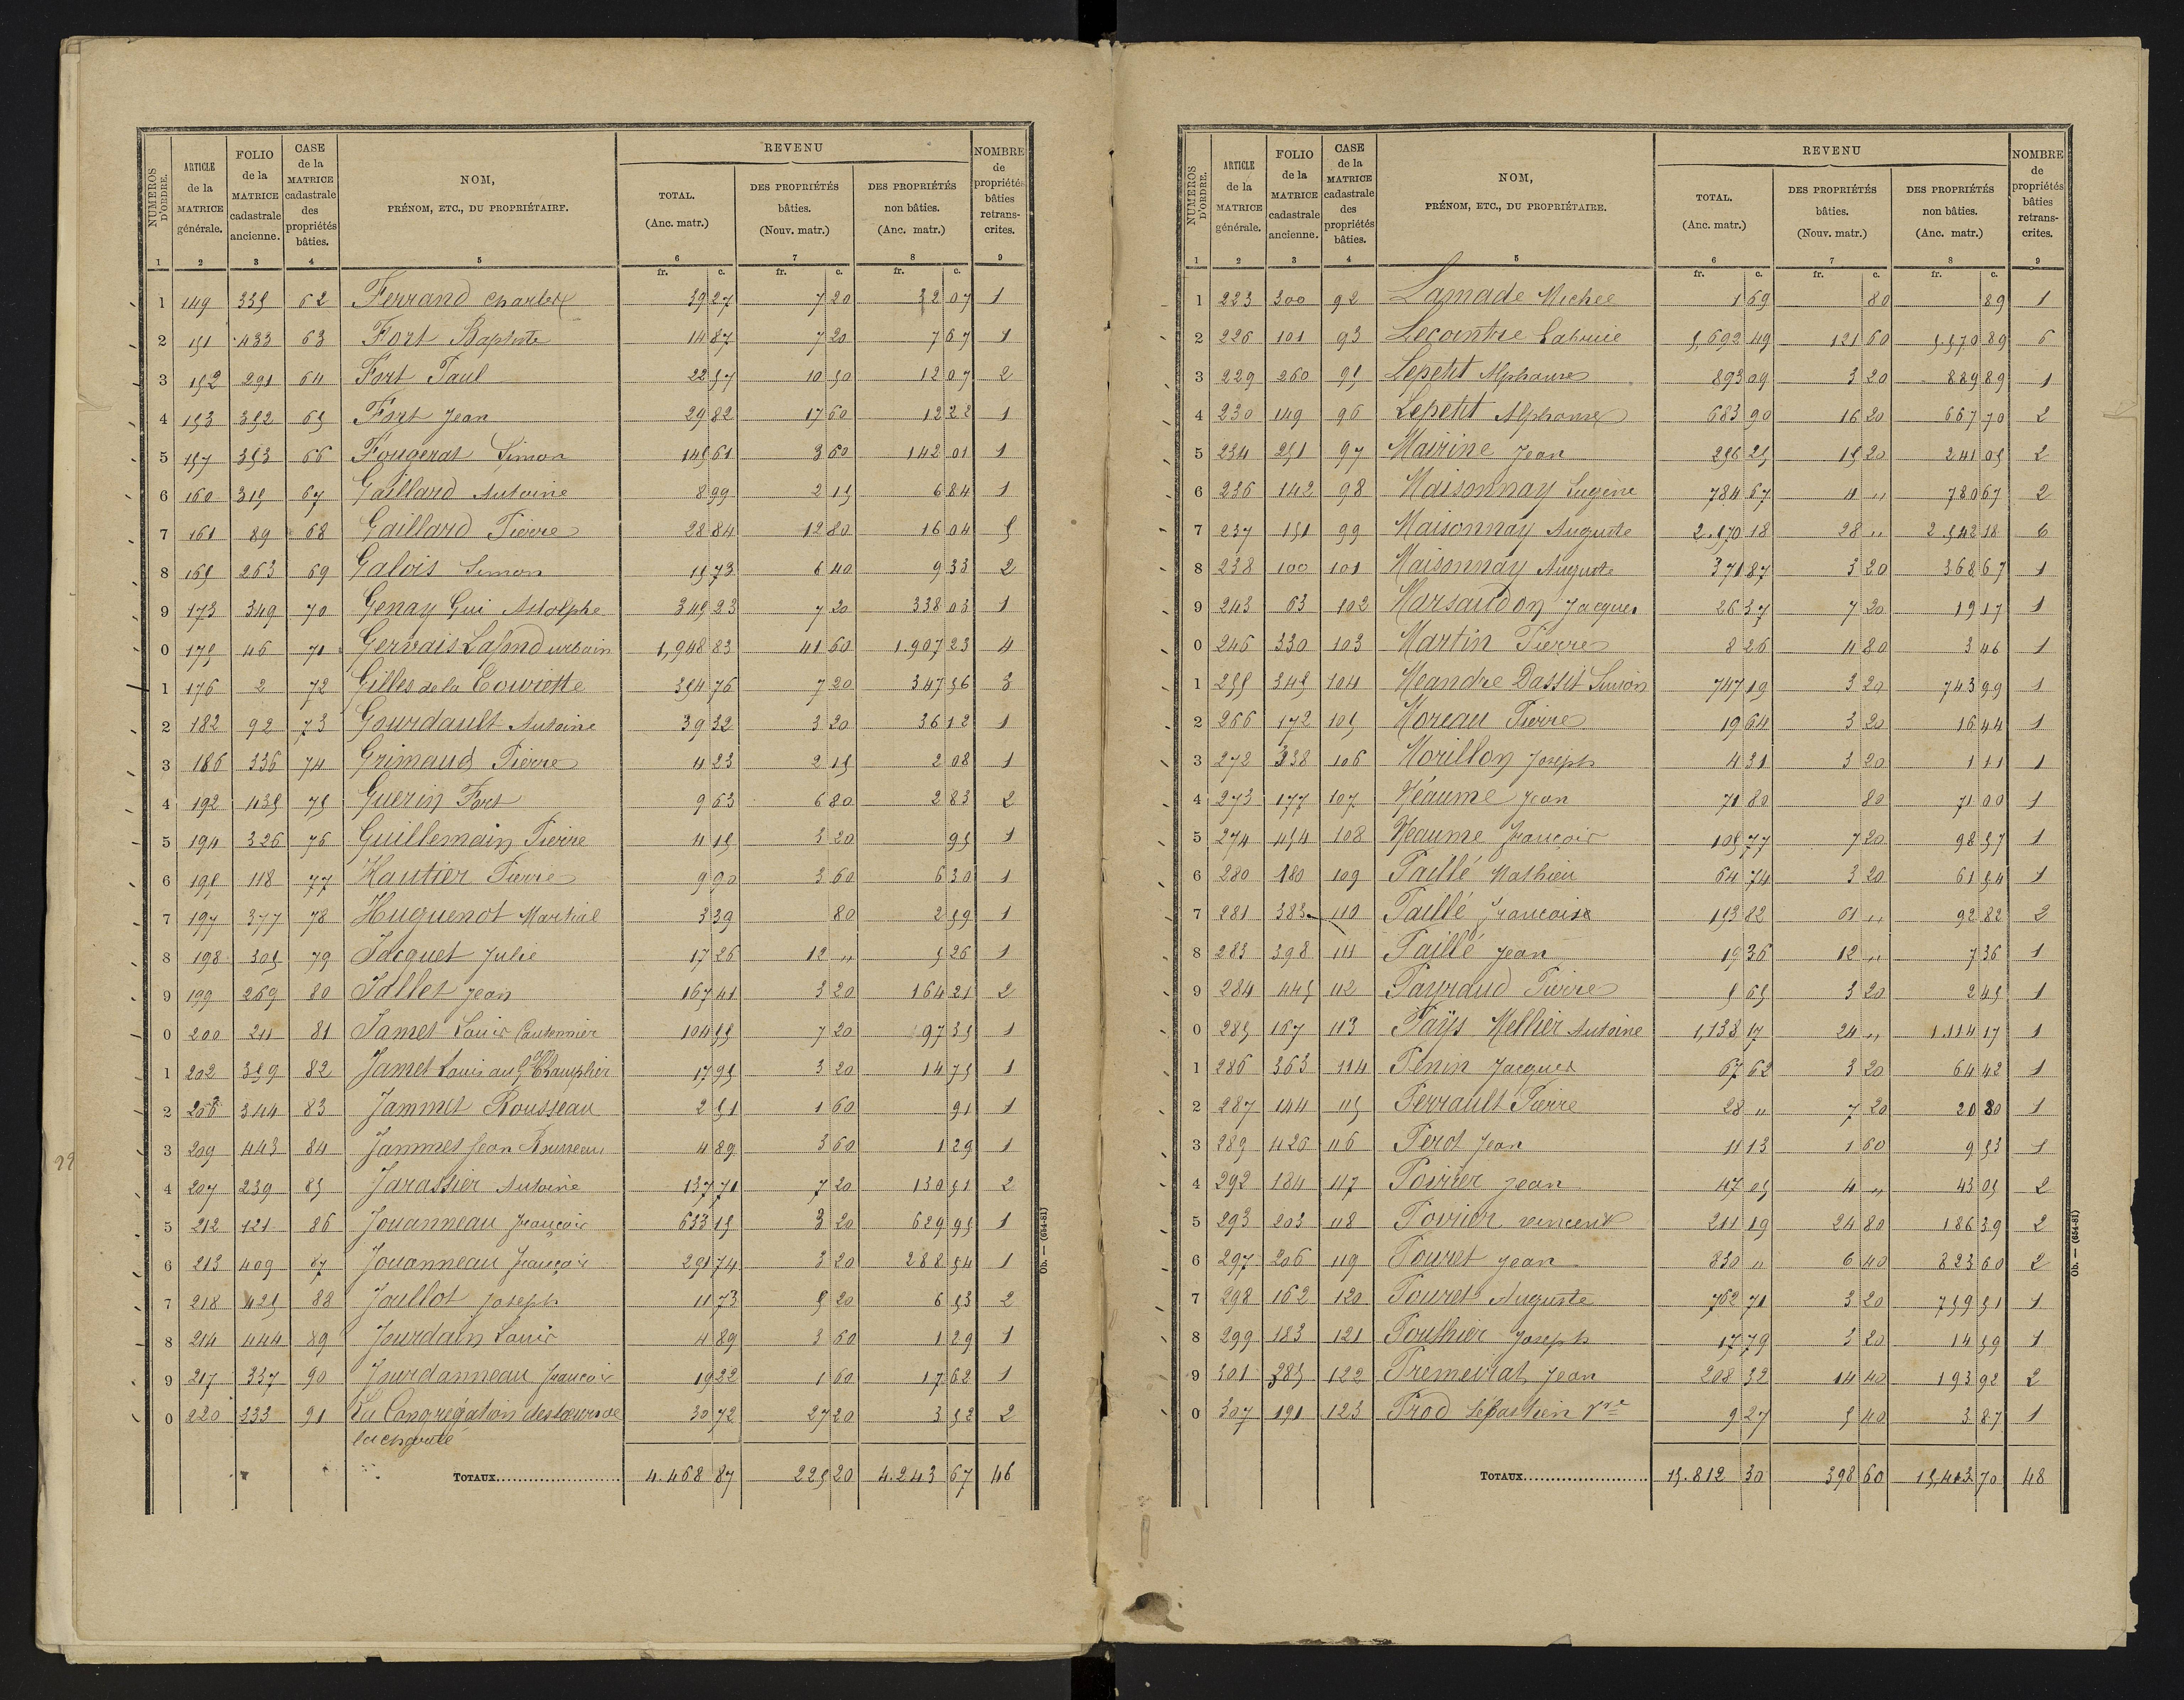 NUMÉROS D'ORDRE. | ARTICLE de la MATRICE générale. | FOLIO de la MATRICE cadastrale ancienne. | CASE de la MATRICE cadastrale des propriétés bâties. | NOM, PRÉNOM, ETC., DU PROPRIÉTAIRE. | REVENU TOTAL. (Anc. matr.) | DES PROPRIÉTÉS bâties. (Nouv. matr.) | DES PROPRIÉTÉS non bâties. (Anc. matr.) | NOMBRE de propriétés bâties retranscrites.
1 2 3 4 5 6 7 8 9
fr. c. fr. c. fr. c.
1 149 335 62 Ferrand Charles 39 27 7 20 32 07 1
2 151 433 63 Fort Baptiste 14 87 7 20 7 67 1
3 152 291 64 Fort Paul 22 57 10 50 12 07 2
4 153 352 65 Fort Jean 29 82 17 60 12 22 1
5 157 353 66 Fougerat Simon 145 61 3 60 142 01 1
6 160 315 67 Gaillard Antoine 8 99 2 15 6 84 1
7 161 89 68 Gaillard Pierre 28 84 12 80 16 04 5
8 165 263 69 Galois Simon 15 73 6 40 9 33 2
9 173 349 70 Genay Gui Adolphe 345 23 7 20 338 03 1
0 175 46 71 Gervais Lafond urbain 1,948 83 41 60 1.907 23 4
1 176 2 72 Gilles de la 354 76 7 20 347 56 3
2 182 92 73 Gourdault Antoine 39 32 3 20 36 12 1
3 186 336 74 Grimaud Pierre 4 23 2 15 2 08 1
4 192 435 75 Guerin Fort 9 63 6 80 2 83 2
5 194 326 76 Guillemain Pierre 4 15 3 20 95 1
6 195 118 77 Hautier Pierre 9 90 3 60 6 30 1
7 197 377 78 Huguenot Martial 3 39 80 2 59 1
8 198 305 79 Jacquet Julie 17 26 12 „ 5 26 1
9 199 269 80 Jallet Jean 167 41 3 20 164 21 2
0 200 211 81 Jamet Louis Cantonnier 104 55 7 20 97 35 1
1 202 359 82 Jamet Louis au 17 95 3 20 14 75 1
2 206 344 83 Jammet Rousseau 2 51 1 60 91 1
3 209 443 84 Jammet Jean Rousseau 4 89 3 60 1 29 1
4 207 239 85 Jarassier Antoine 137 71 7 20 130 51 2
5 212 121 86 Jouanneau François 633 15 3 20 629 95 1
6 213 409 87 Jouanneau François 291 74 3 20 288 54 1
7 218 425 88 Joullot Joseph 11 73 5 20 6 53 2
8 214 444 89 Jourdain Louis 4 89 3 60 1 29 1
9 217 337 90 Jourdanneau François 19 22 1 60 17 62 1
0 220 333 91 La Congrégation des sœurs de 30 72 27 20 3 52 2
la charité
TOTAUX 4.468 87 225 20 4.243 67 46
Ob. — (654-81)
29
NUMÉROS D'ORDRE. | ARTICLE de la MATRICE générale. | FOLIO de la MATRICE cadastrale ancienne. | CASE de la MATRICE cadastrale des propriétés bâties. | NOM, PRÉNOM, ETC., DU PROPRIÉTAIRE. | REVENU TOTAL. (Anc. matr.) | DES PROPRIÉTÉS bâties. (Nouv. matr.) | DES PROPRIÉTÉS non bâties. (Anc. matr.) | NOMBRE de propriétés bâties retranscrites.
1 2 3 4 5 6 7 8 9
fr. c. fr. c. fr. c.
1 223 300 92 Lamade Michel 1 69 80 89 1
2 226 101 93 Lecointre 5,692 49 121 60 5.570 89 6
3 229 260 95 Lepetit Alphonse 893 09 3 20 889 89 1
4 230 149 96 Lepetit Alphonse 683 90 16 20 667 70 2
5 234 251 97 Mairine Jean 256 25 15 20 241 05 2
6 236 142 98 Maisonnay Eugène 784 67 4 „ 780 67 2
7 237 151 99 Maisonnay Auguste 2.570 18 28 „ 2.542 18 6
8 238 100 101 Maisonnay Auguste 371 87 3 20 368 67 1
9 243 63 102 Marsaudon Jacques 26 37 7 20 19 17 1
0 246 330 103 Martin Pierre 8 26 4 80 3 46 1
1 255 345 104 Meandre Dassit Simon 747 19 3 20 743 99 1
2 266 172 105 Moreau Pierre 19 64 3 20 16 44 1
3 272 338 106 Morillon Joseph 4 31 3 20 1 11 1
4 273 177 107 Néaume Jean 71 80 80 71 00 1
5 274 454 108 Néaume François 105 77 7 20 98 57 1
6 280 180 109 Paillé Mathieu 64 74 3 20 61 54 1
7 281 383 110 Paillé Francoise 153 82 61 „ 92 82 2
8 283 398 111 Paillé Jean 19 36 12 „ 7 36 1
9 284 445 112 Payraud Pierre 5 65 3 20 2 45 1
0 285 167 113 Paÿs Mellier Antoine 1,138 17 24 „ 1.114 17 1
1 286 363 114 Penin Jacques 67 62 3 20 64 42 1
2 287 144 115 Perrault Pierre 28 „ 7 20 20 80 1
3 289 426 116 Perot Jean 11 13 1 60 9 53 1
4 292 184 117 Poirier Jean 47 05 4 „ 43 05 2
5 293 203 118 Poirier vincent 211 19 24 80 186 39 2
6 297 206 119 Pouret Jean 830 „ 6 40 823 60 2
7 298 162 120 Pouret Auguste 762 71 3 20 759 51 1
8 299 183 121 Pouthier Joseph 17 79 3 20 14 59 1
9 301 385 122 Premeirat Jean 208 32 14 40 193 92 2
0 307 191 123 Prod Sébastien Vve 9 27 5 40 3 87 1
TOTAUX 15.812 30 398 60 15,413 70 48
Ob. — (654-81)